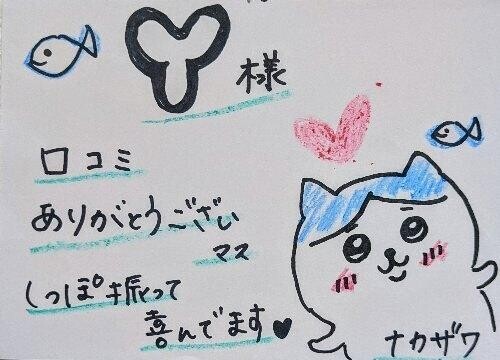 Y 様
口コミ
ありがとうござい
マス
しっぽ振って
喜んでます♥
ナカザワ